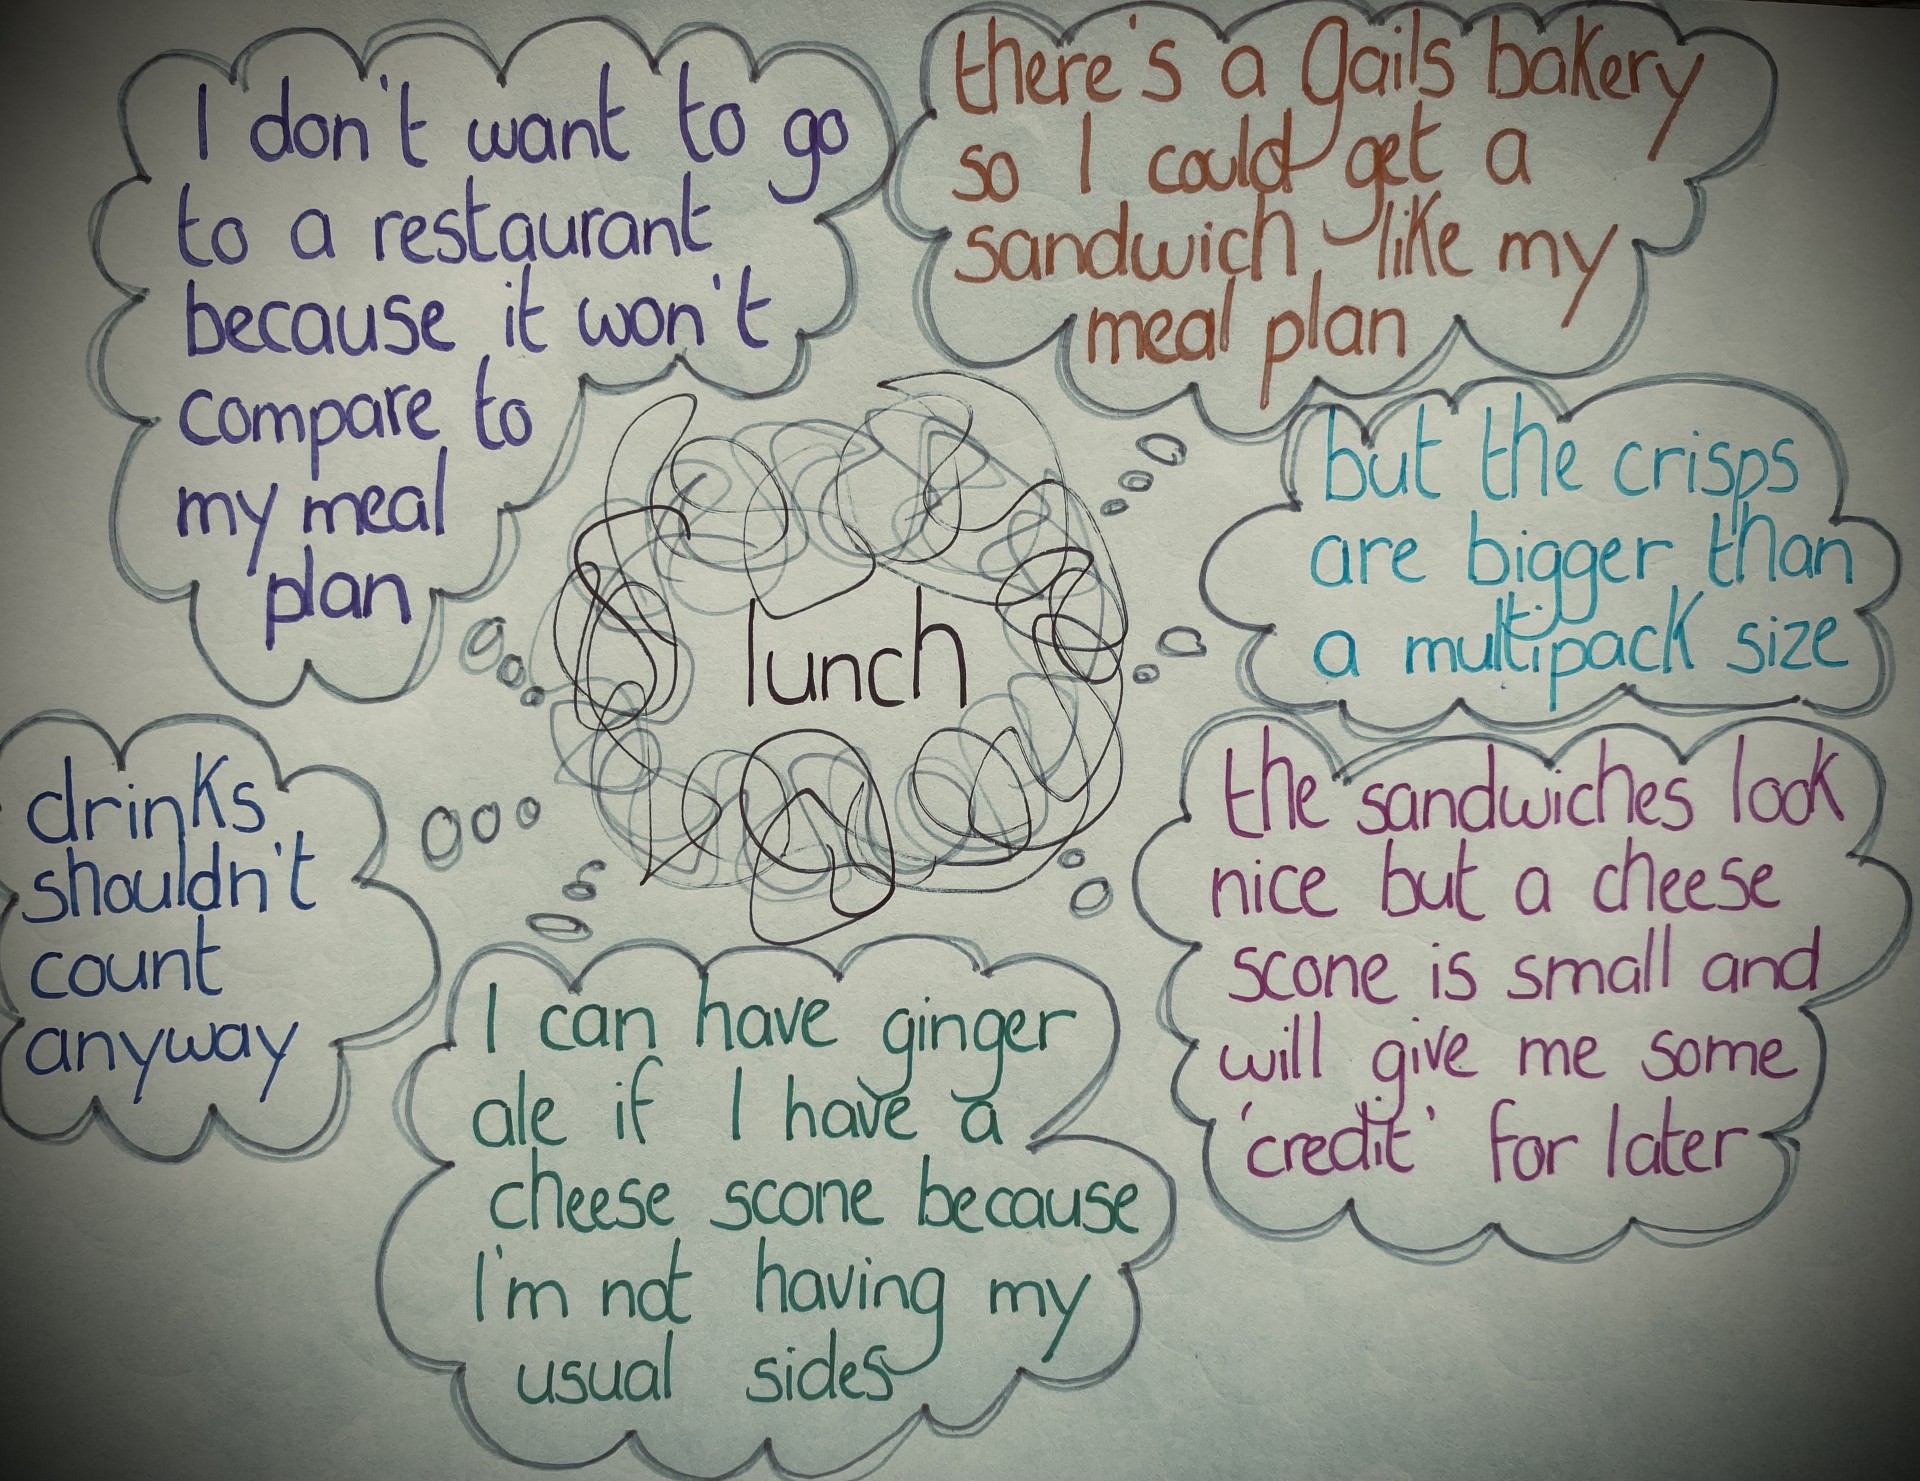 I don't want to go
to a restaurant
because it won't
compare to
my meal
plan
there's a Gails bakery
so I could get a
sandwich like my
meal plan
but the crisps
are bigger than
a multipack size
lunch
the sandwiches look
nice but a cheese
scone is small and
will give me some
'credit' for later
drinks
shouldn't
count
anyway
I can have ginger
ale if I have a
cheese scone because
I'm not having my
usual sides